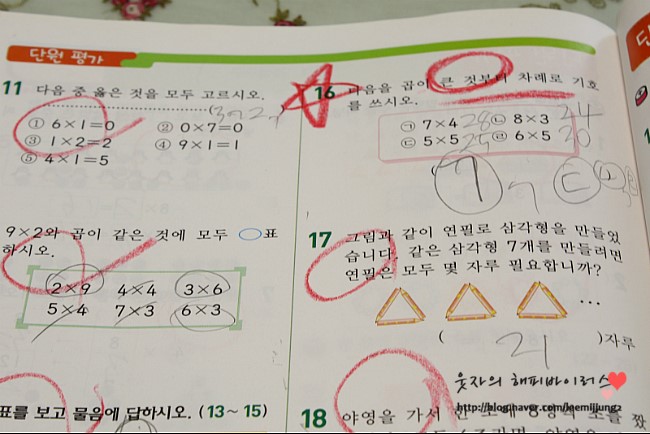 단원 평가
11 다음 중 옳은 것을 모두 고르시오.
(3, 2,
① 6×1=0 ② 0×7=0
③ 1×2=2 ④ 9×1=1
⑤ 4×1=5
9×2와 곱이 같은 것에 모두 ○표
하시오.
2×9 4×4 3×6
5×4 7×3 6×3
표를 보고 물음에 답하시오. (13~15)
16 다음을 곱이 큰 것부터 차례로 기호
를 쓰시오.
㉠ 7×4 28 ㉡ 8×3 24
㉢ 5×5 25 ㉣ 6×5 30
17 그림과 같이 연필로 삼각형을 만들었
습니다. 같은 삼각형 7개를 만들려면
연필은 모두 몇 자루 필요합니까?
...
( 21 )자루
웃자의 해피바이러스
18 야영을 가서 한